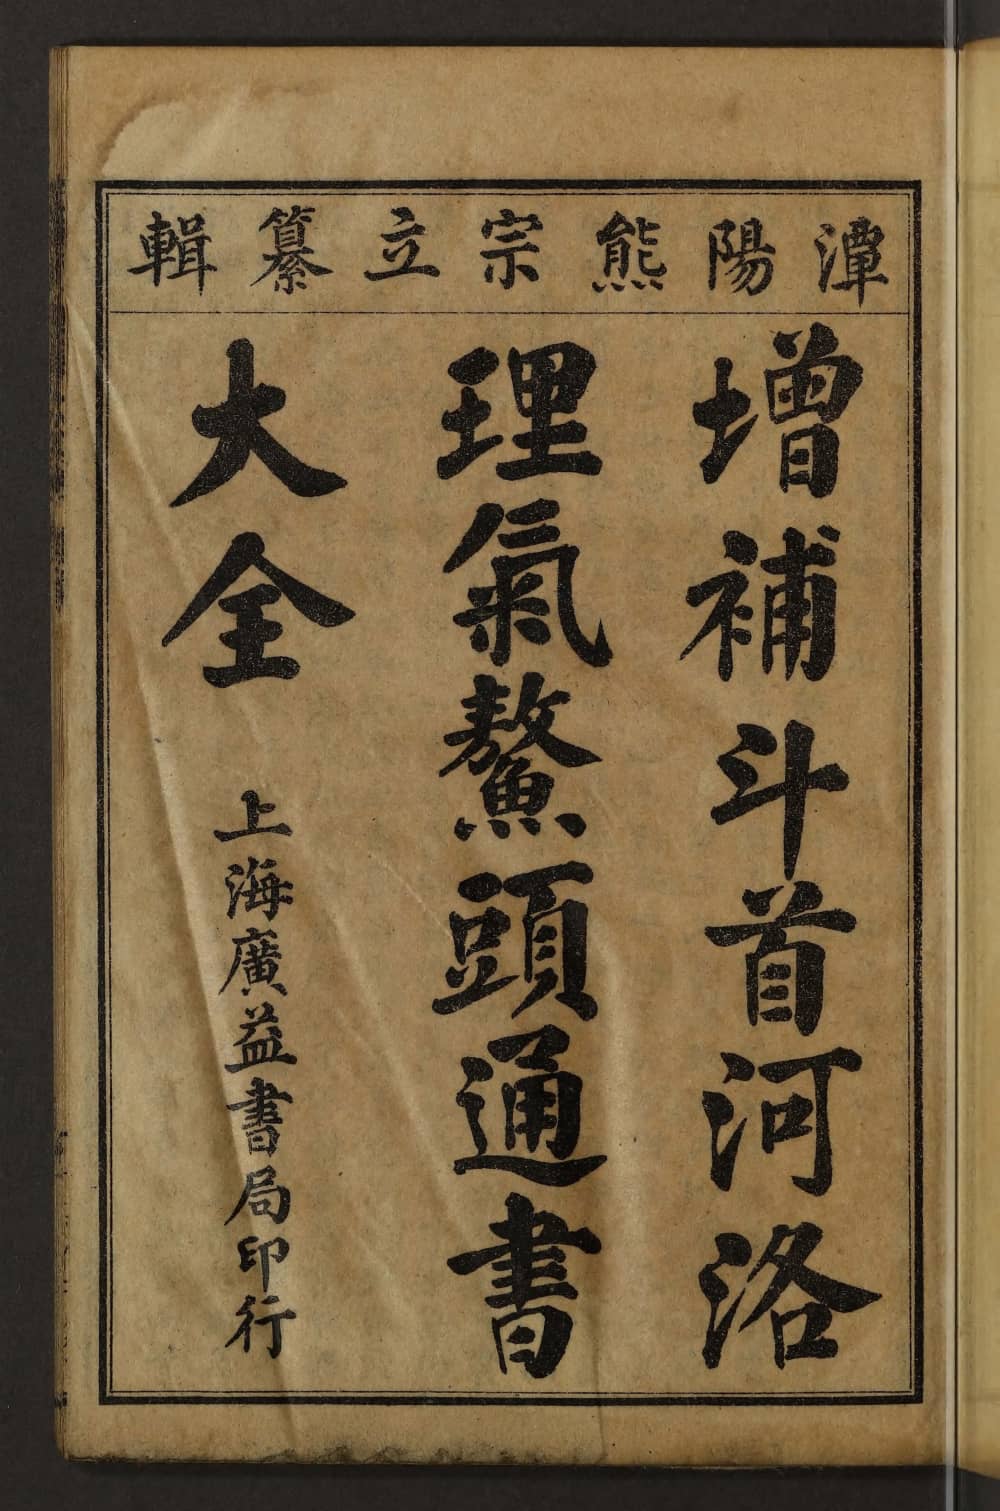 潭陽熊宗立纂輯
增補斗首河洛
理氣鰲頭通書
大全
上海廣益書局印行